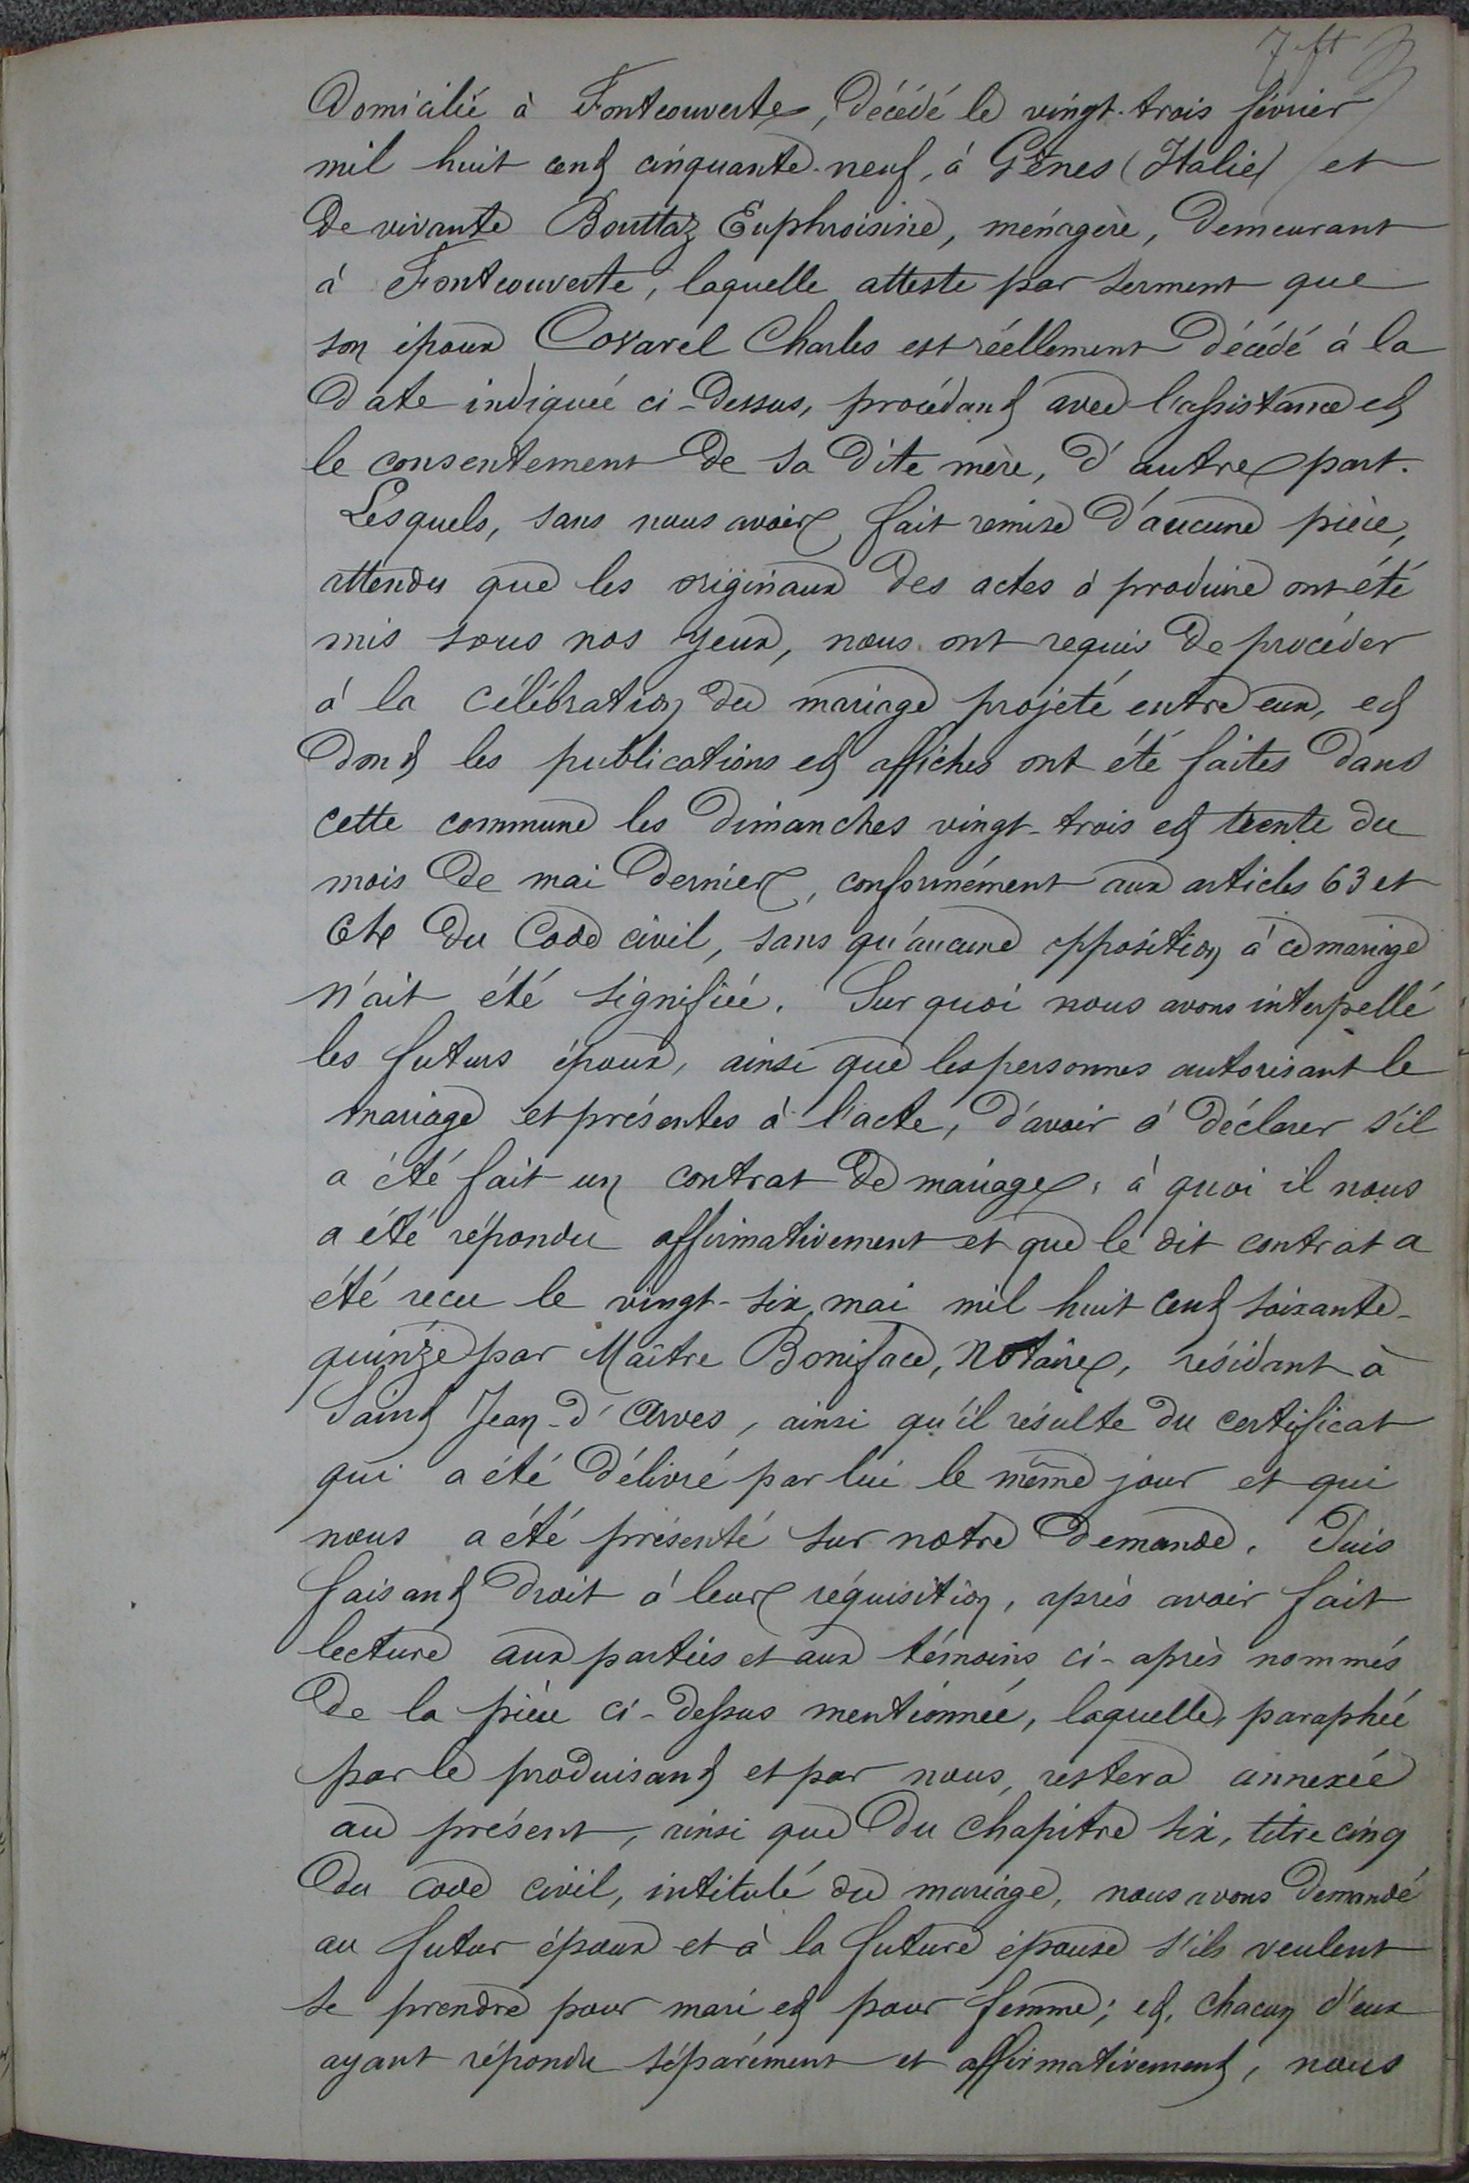 7 ft
Domicilié à Fontcouverte, décédé le vingt-trois février
mil huit cent cinquante-neuf, à Gênes (Italie) et
de vivante Bouttaz Euphroisine, ménagère, demeurant
à Fontcouverte, laquelle atteste par serment que
son époux Covarel Charles est réellement décédé à la
date indiquée ci-dessus, procédant avec l'assistance et
le consentement de sa dite mère, d'autre part.
Lesquels, sans nous avoir fait remise d'aucune pièce,
attendu que les originaux des actes à produire ont été
mis sous nos yeux, nous ont requis de procéder
à la célébration du mariage projeté entre eux, et
dont les publications et affiches ont été faites dans
cette commune les dimanches vingt-trois et trente du
mois de mai dernier, conformément aux articles 63 et
64 du Code civil, sans qu'aucune opposition à ce mariage
n'ait été signifiée. Sur quoi nous avons interpellé
les futurs époux, ainsi que les personnes autorisant le
mariage et présentes à l'acte, d'avoir à déclarer s'il
a été fait un contrat de mariage, à quoi il nous
a été répondu affirmativement et que le dit contrat a
été recu le vingt-six mai mil huit cent soixante-
quinze par Maître Boniface, Notaire, résidant à
Saint Jean-d'Arves, ainsi qu'il résulte du certificat
qui a été délivré par lui le même jour et qui
nous a été présenté sur notre demande. Puis
faisant droit à leur réquisition, après avoir fait
lecture aux parties et aux témoins ci-après nommés
de la pièce ci-dessus mentionnée, laquelle, paraphée
par le produisant et par nous, restera annexée
au présent, ainsi que du chapitre six, titre cinq
du code civil, intitulé du mariage, nous avons demandé
au futur époux et à la future épouse s'ils veulent
se prendre pour mari et pour femme; et, chacun d'eux
ayant répondu séparément et affirmativement, nous